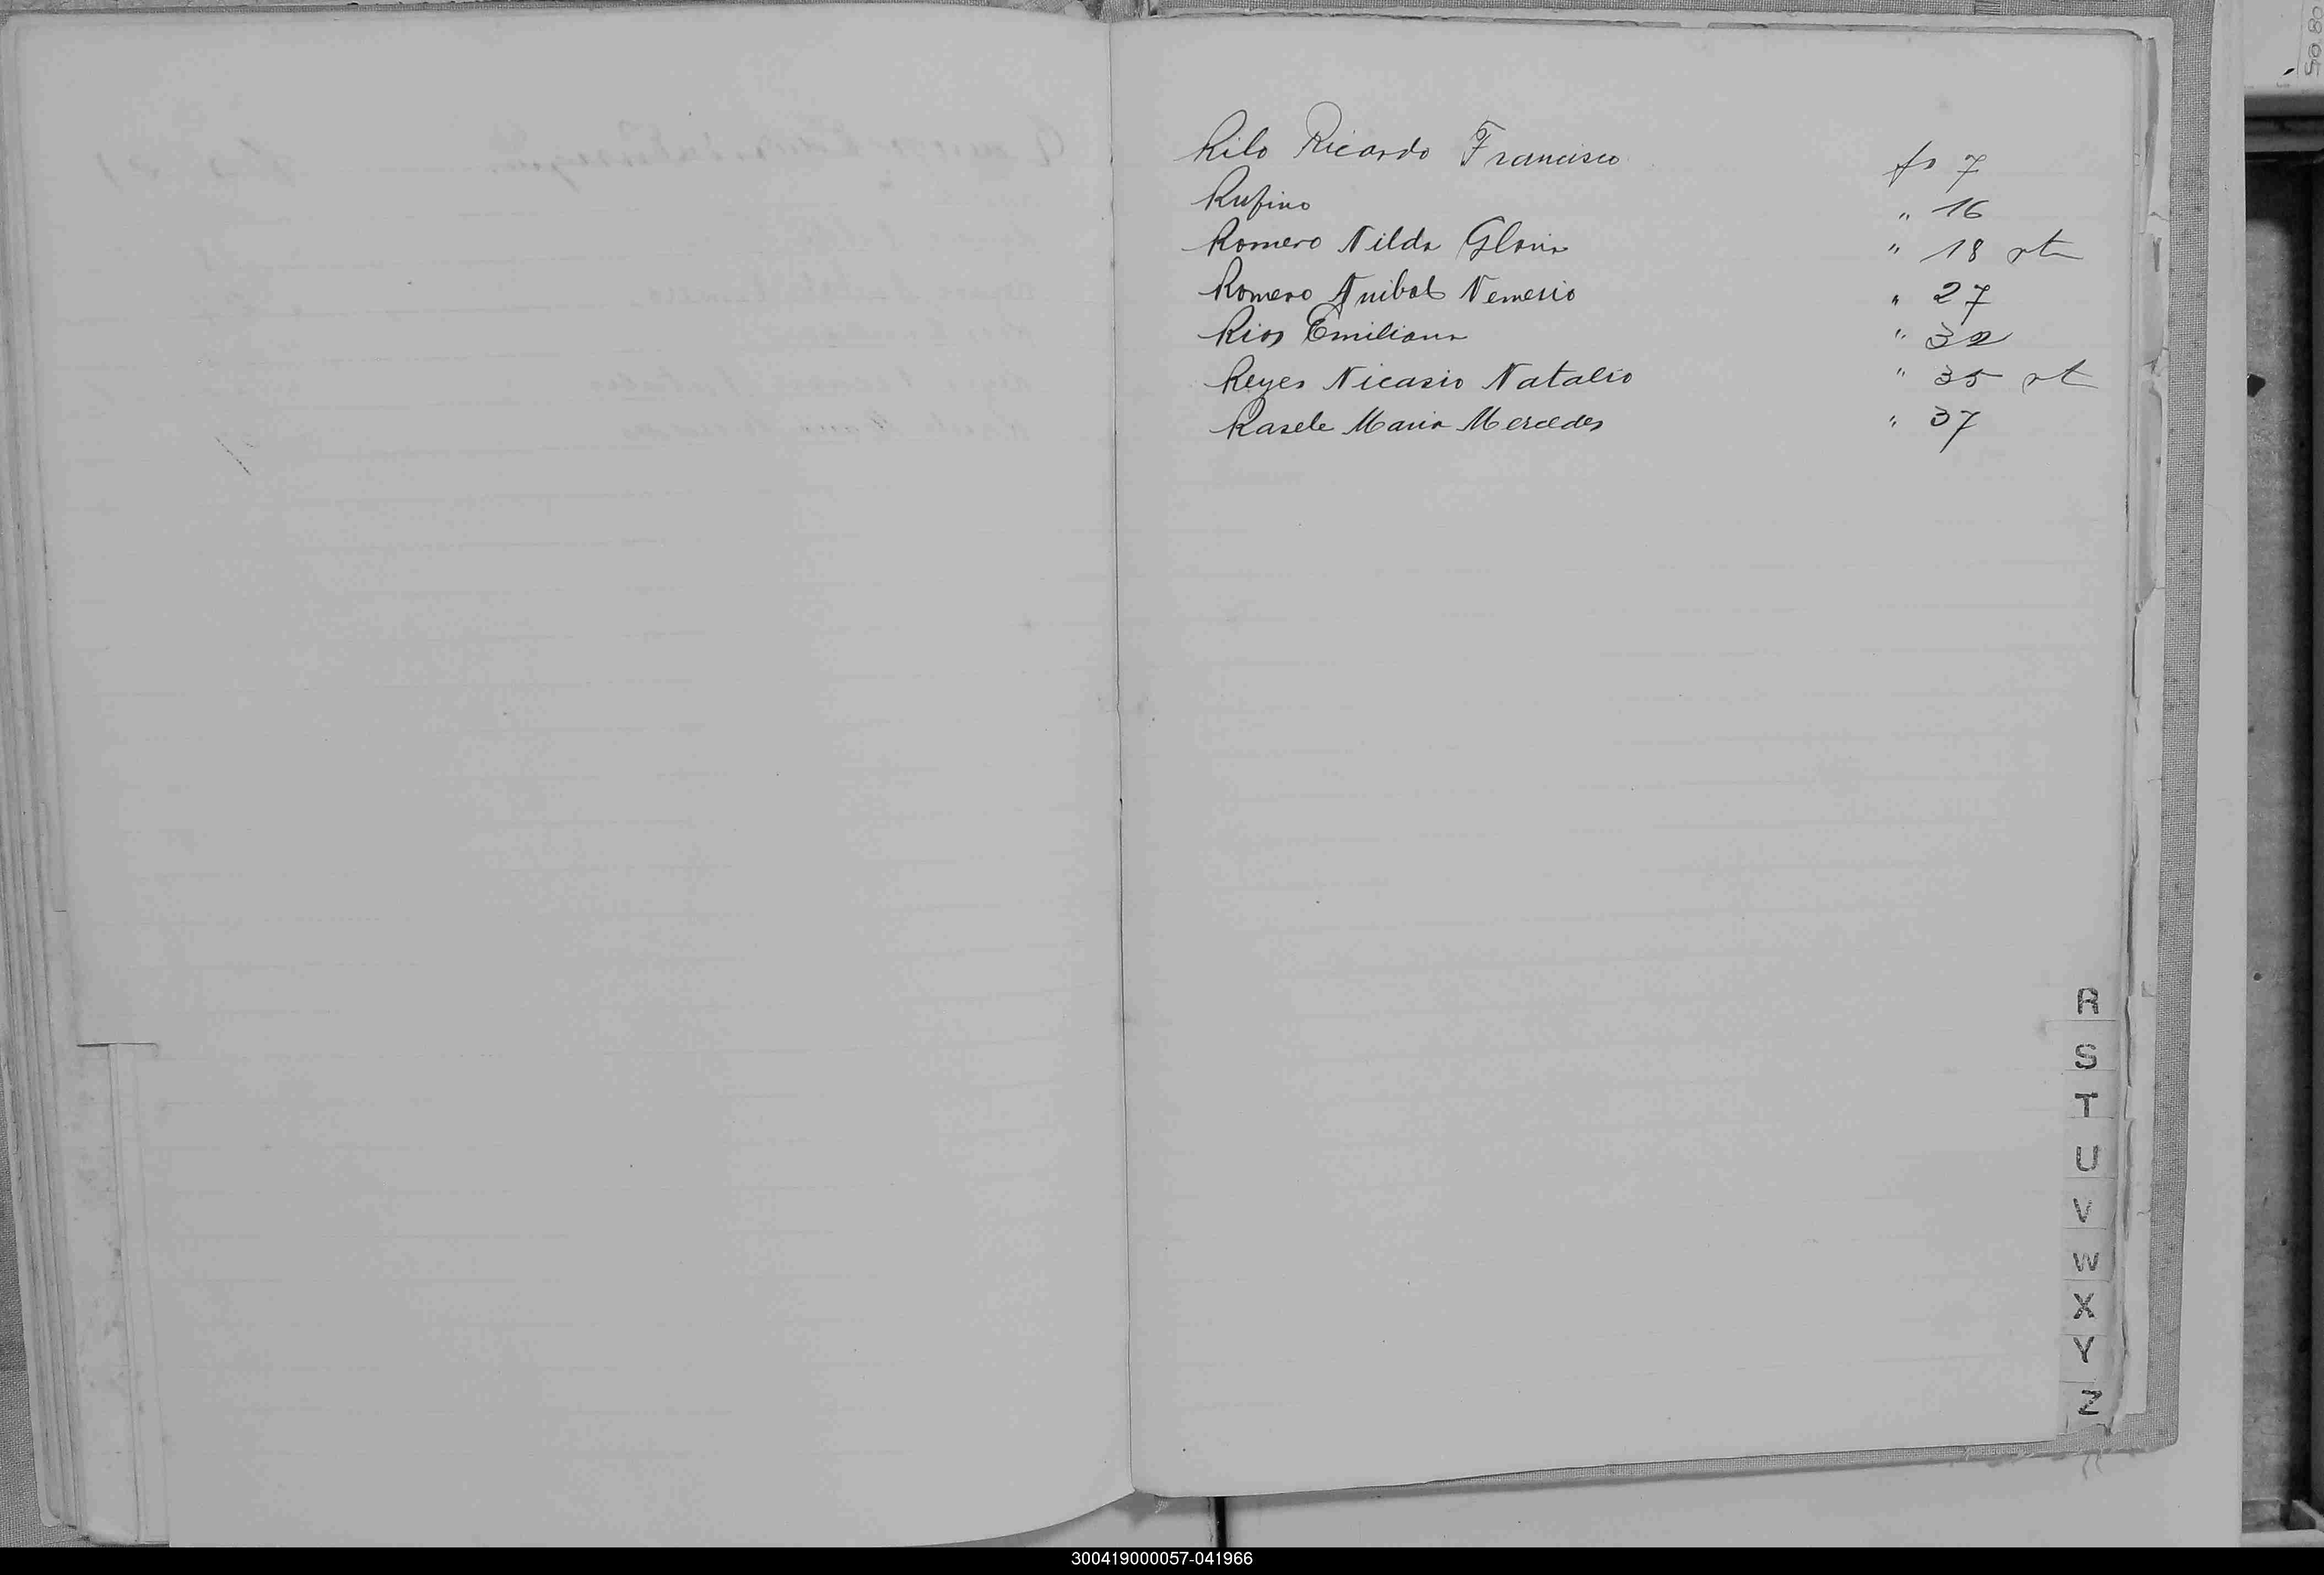 Rilo Ricardo Francisco fs 7
Rufino " 16
Romero Nilda Gloria " 18 vt
Romero Anibal Nemesio " 27
Rios Emiliana " 32
Reyes Nicasio Natalio " 35 vt
Rasele Maria Mercedes " 37
R
S
T
U
V
W
X
Y
Z
300419000057-041966